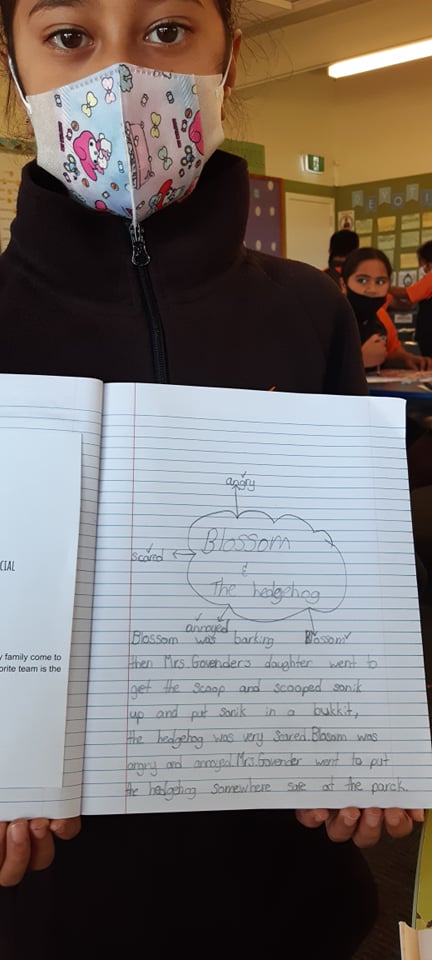 CIAL
y family come to
orite team is the
angry
Blossom
&
scared
The hedgehog
annoyed
Blossom
Blossom was barking
then Mrs.Govenders daughter went to
get the scoop and scooped sonik
up and put sonik in a bukkit,
the hedgehog was very scared.Blossom was
angry and annoyed.Mrs.Govender went to put
the hedgehog somewhere safe at the parck.